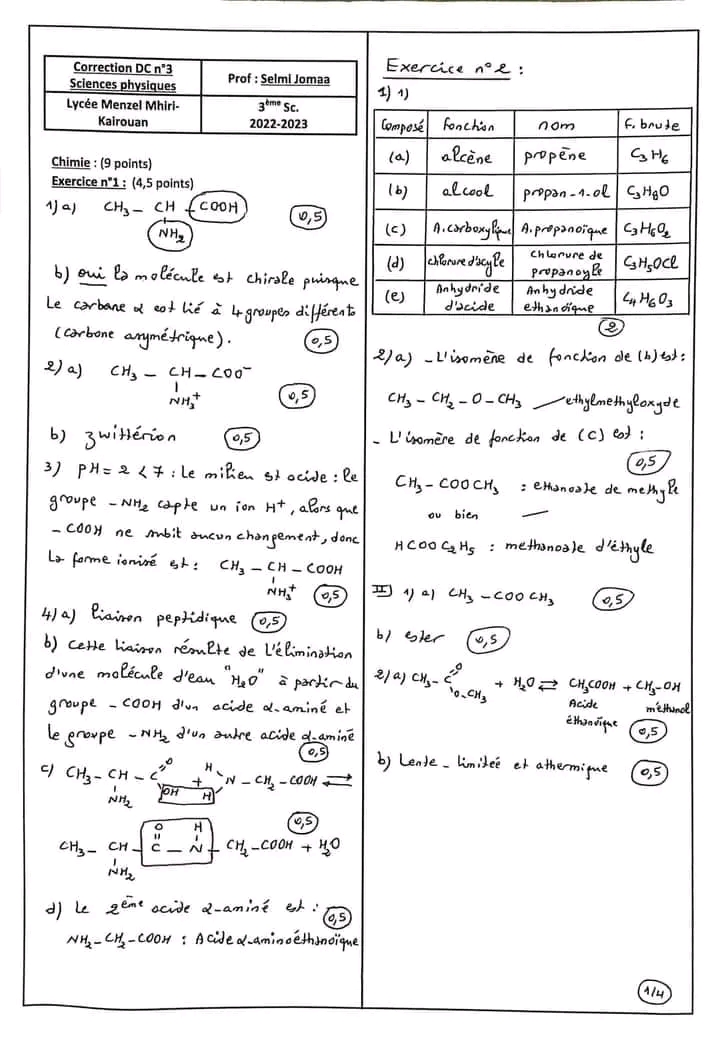 Correction DC n°3
Sciences physiques
Prof : Selmi Jomaa
Lycée Menzel Mhiri-
Kairouan
3ème Sc.
2022-2023
Chimie : (9 points)
Exercice n°1 : (4,5 points)
1) a) CH3 – CH – COOH 0,5
NH2
b) oui la molécule est chirale puisque
Le carbone α est lié à 4 groupes différents
(carbone asymétrique). 0,5
2) a) CH3 – CH – COO⁻
NH3⁺ 0,5
b) zwittérion 0,5
3) pH = 2 < 7 : Le milieu est acide : le
groupe – NH2 capte un ion H⁺, alors que
– COOH ne subit aucun changement, donc
La forme ionisé est : CH3 – CH – COOH
NH3⁺ 0,5
4) a) liaison peptidique 0,5
b) Cette liaison résulte de l'élimination
d'une molécule d'eau "H2O" à partir du
groupe – COOH d'un acide α-aminé et
le groupe – NH2 d'un autre acide α-aminé
0,5
c) CH3 – CH – C =O OH + H H N – CH2 – COOH ⇄
NH2
0,5
O H
CH3 – CH – C – N – CH2 – COOH + H2O
NH2
d) Le 2ème acide α-aminé est : 0,5
NH2 – CH2 – COOH : Acide α-aminoéthanoïque
Exercice n°2 :
I) 1)
Composé fonction nom F. brute
(a) alcène propène C3H6
(b) alcool propan-1-ol C3H8O
(c) A. carboxylique A. propanoïque C3H6O2
(d) chlorure d'acyle chlorure de propanoyle C3H5OCl
(e) Anhydride d'acide Anhydride ethanoïque C4H6O3
2
2) a) – L'isomère de fonction de (b) est :
CH3 – CH2 – O – CH3 — ethylmethyloxyde
– L'isomère de fonction de (c) est :
0,5
CH3 – COOCH3 : ethanoate de methyle
ou bien —
HCOOC2H5 : methanoate d'éthyle
II) 1) a) CH3 – COOCH3 0,5
b) ester 0,5
2) a) CH3 – C =O O–CH3 + H2O ⇄ CH3COOH + CH3-OH
Acide éthanoïque méthanol
0,5
b) Lente – limitée et athermique 0,5
1/4